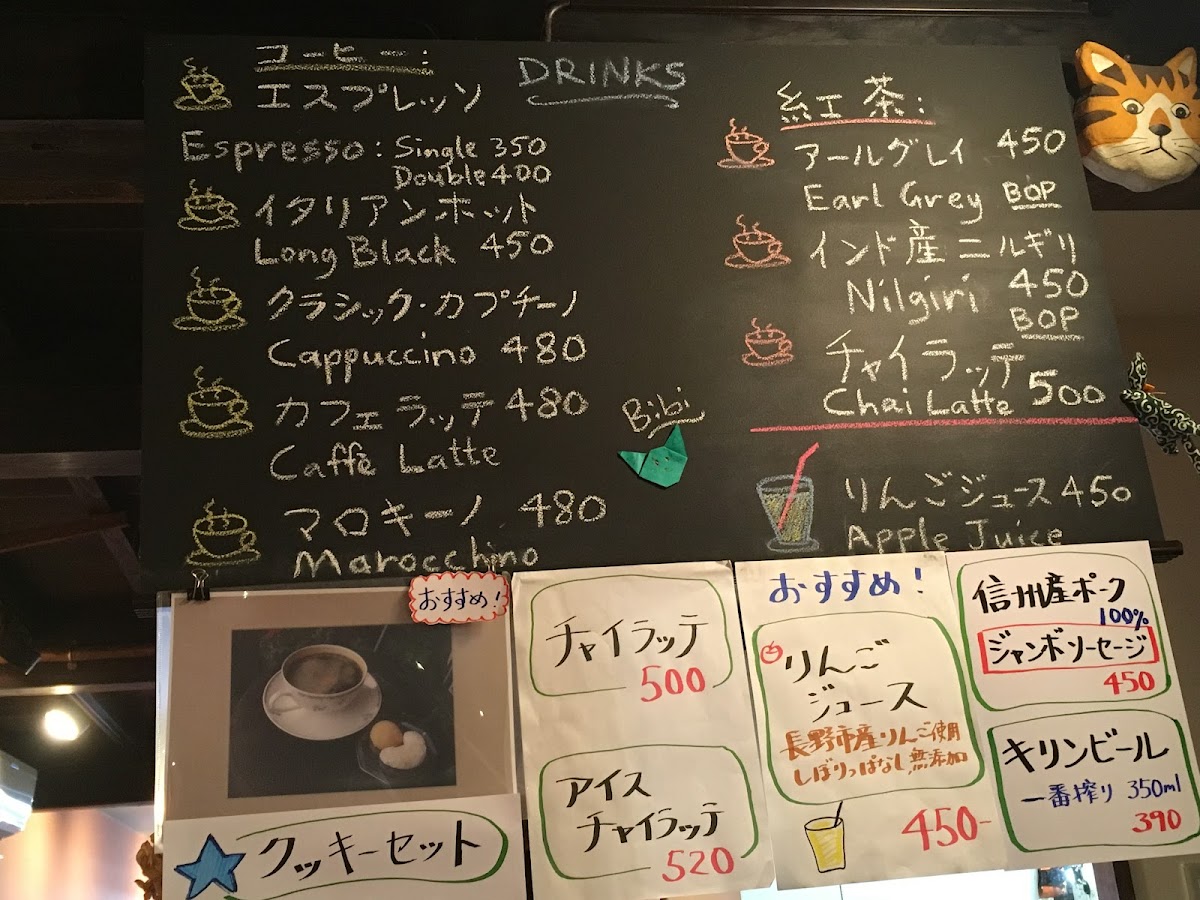 DRINKS
コーヒー:
エスプレッソ
Espresso: Single 350
Double 400
イタリアンホット
Long Black 450
クラシック・カプチーノ
Cappuccino 480
カフェラッテ 480
Caffè Latte
マロキーノ 480
Marocchino
Bibi
紅茶:
アールグレイ 450
Earl Grey BOP
インド産ニルギリ
Nilgiri 450
BOP
チャイラッテ
Chai Latte 500
りんごジュース 450
Apple Juice
おすすめ!
クッキーセット
チャイラッテ
500
アイス
チャイラッテ
520
おすすめ!
りんご
ジュース
長野市産りんご使用
しぼりっぱなし、無添加
450-
信州産ポーク
100%
ジャンボソーセージ
450
キリンビール
一番搾り 350ml
390